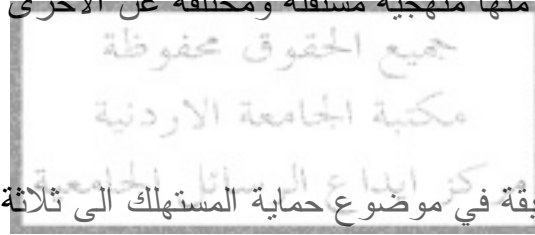 منها منهجية مستقلة ومختلفة عن الاخرى
جميع الحقوق محفوظة
مكتبة الجامعة الاردنية
مركز ايداع الرسائل الجامعية
في موضوع حماية المستهلك الى ثلاثة